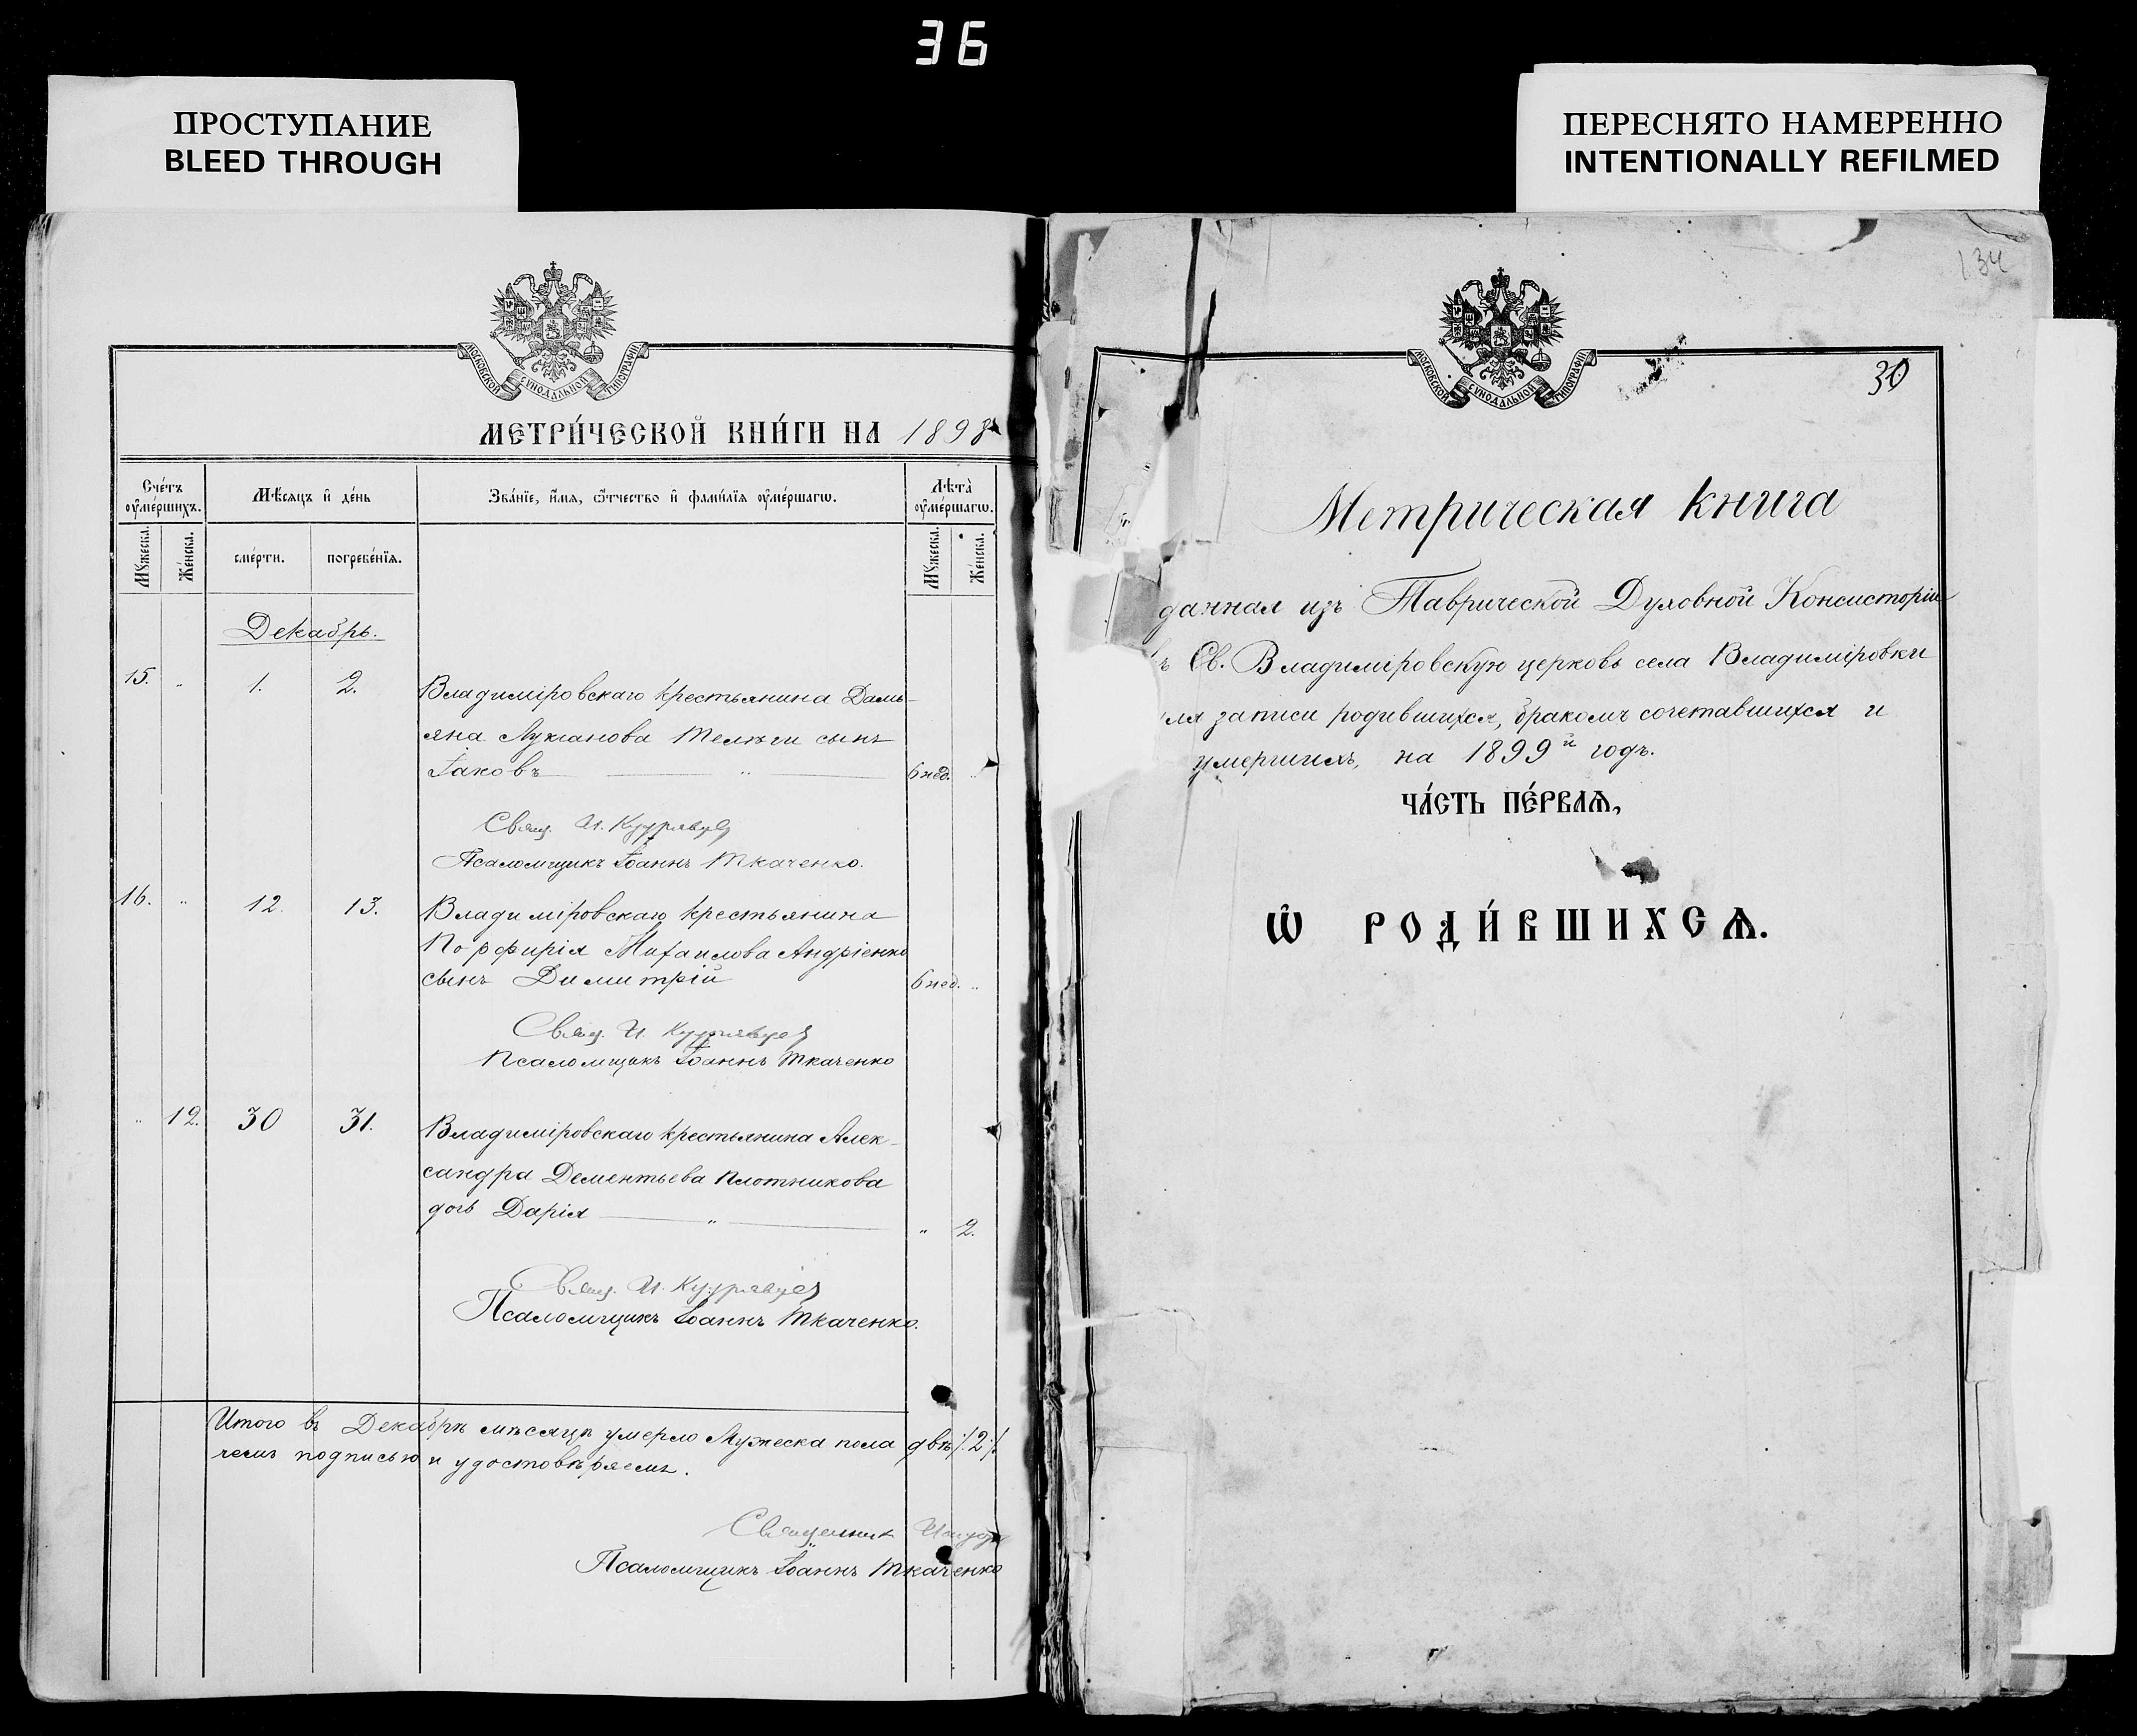 36
ПРОСТУПАНИЕ
BLEED THROUGH
ПЕРЕСНЯТО НАМЕРЕННО
INTENTIONALLY REFILMED
МОСКОВСКОЙ СѴНОДАЛЬНОЙ ТИПОГРАФІИ
МЕТРИ́ЧЕСКОЙ КНИ́ГИ НА 1898
Сче́тъ ᲂу҆ме́ршихъ.
Мѣ́сяцъ и҆ де́нь
Зва́нїе, и҆́мя, ѻ҆́тчество и҆ фами́лїя ᲂу҆ме́ршагѡ.
Лѣта̀ ᲂу҆ме́ршагѡ.
Мꙋ́жеска.
Же́нска.
сме́рти.
погребе́нїя.
Мꙋ́жеска.
Же́нска.
Декабрь.
15. " 1. 2. Владиміровскаго крестьянина Дамь-
яна Лукіанова Телѣги сынъ
Іаковъ " 6 нед. "
Свящ. И. Кудрявцев
Псаломщикъ Іоаннъ Ткаченко.
16. " 12. 13. Владиміровскаго крестьянина
Порфирія Михаилова Андріенко
сынъ Димитрій 6 нед. "
Свящ. И. Кудрявцев
Псаломщикъ Іоаннъ Ткаченко
" 12. 30 31. Владиміровскаго крестьянина Алек-
сандра Дементьева Плотникова
дочь Дарія " " 2.
Свящ. И. Кудрявцев
Псаломщикъ Іоаннъ Ткаченко.
Итого въ Декабрѣ мѣсяцѣ умерло Мужеска пола двѣ /:2:/
чемъ подписью и удостовѣряемъ.
Священник
Псаломщикъ Іоаннъ Ткаченко
134
МОСКОВСКОЙ СѴНОДАЛЬНОЙ ТИПОГРАФІИ
30
Метрическая книга
данная изъ Таврической Духовной Консисторіи
ъ Св. Владиміровскую церковь села Владиміровки
ля записи родившихся, бракомъ сочетавшихся и
умершихъ, на 1899й годъ.
ЧА́СТЬ ПЕ́РВАѦ,
Ѡ҆ РОДИ́ВШИХСѦ.